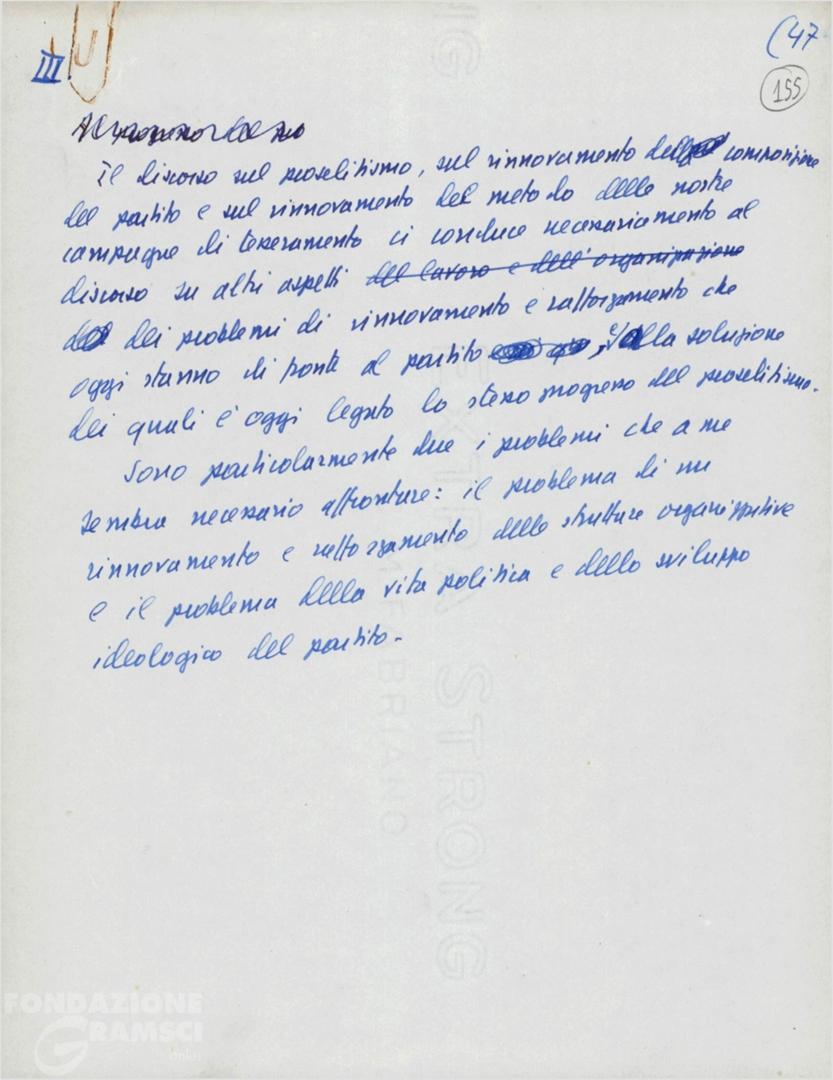 III
(47
155
Il discorso sul proselitismo, sul rinnovamento della composizione
del partito e sul rinnovamento del metodo delle nostre
campagne di tesseramento ci conduce necessariamento al
discorso su altri aspetti del lavoro e dell'organizzazione
dei problemi di rinnovamento e rafforzamento che
oggi stanno di fronte al partito, e alla soluzione
dei quali è oggi legato lo stesso progresso del proselitismo.
Sono particolarmente due i problemi che a me
sembra necessario affrontare: il problema di un
rinnovamento e rafforzamento delle strutture organizzative
e il problema della vita politica e dello sviluppo
ideologico del partito.
EXTRA STRONG
FABRIANO
FONDAZIONE
GRAMSCI
onlus